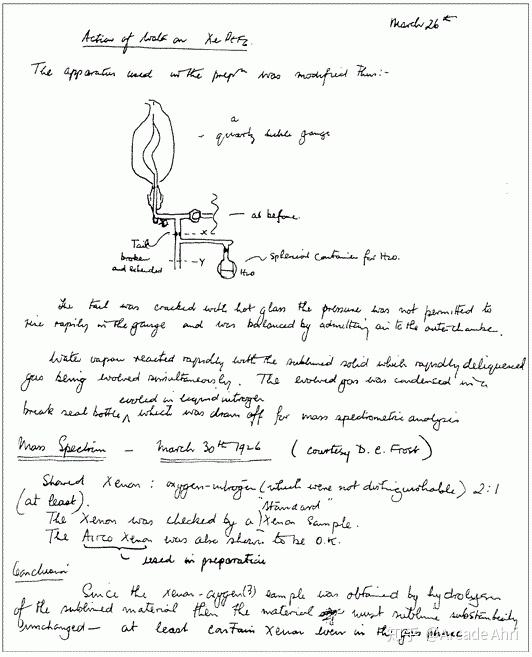 March 26th
Action of Water on XePtF6.
The apparatus used in the prepn was modified thus:-
- a quartz sickle gauge
- as before.
Tail broken and extended
X
Y
Spherical Container for H2O.
H2O
The tail was cracked with hot glass the pressure was not permitted to
rise rapidly in the gauge and was balanced by admitting air to the outer chamber.
Water vapour reacted rapidly with the sublimed solid which rapidly deliquesced
gas being evolved simultaneously. The evolved gas was condensed in a
cooled in liquid nitrogen
break seal bottle ^ which was drawn off for mass spectrometric analysis
Mass Spectrum - March 30th 1926 (courtesy D. C. Frost)
Showed Xenon : oxygen-nitrogen (which were not distinguishable) 2:1
(at least).
"Standard"
The Xenon was checked by a Xenon Sample.
The Airco Xenon was also shown to be O.K.
used in preparation
Conclusion
Since the xenon-oxygen(?) sample was obtained by hydrolysis
of the sublimed material then the material must sublime substantially
unchanged — at least contain xenon even in the gas phase
知乎 @Arcade Ahri